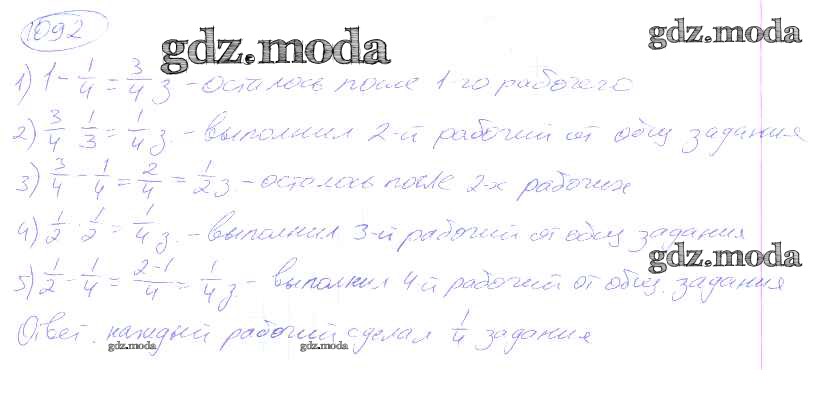 1092
gdz.moda
gdz.moda
1) 1 - 1/4 = 3/4 з - осталось после 1-го рабочего
2) 3/4 · 1/3 = 1/4 з. - выполнил 2-й рабочий от общ задания
3) 3/4 - 1/4 = 2/4 = 1/2 з - осталось после 2-х рабочих
4) 1/2 · 1/2 = 1/4 з. - выполнил 3-й рабочий от общ задания
gdz.moda
5) 1/2 - 1/4 = 2-1/4 = 1/4 з - выполнил 4й рабочий от общ. задания
Ответ. каждый рабочий сделал 1/4 задания
gdz.moda
gdz.moda